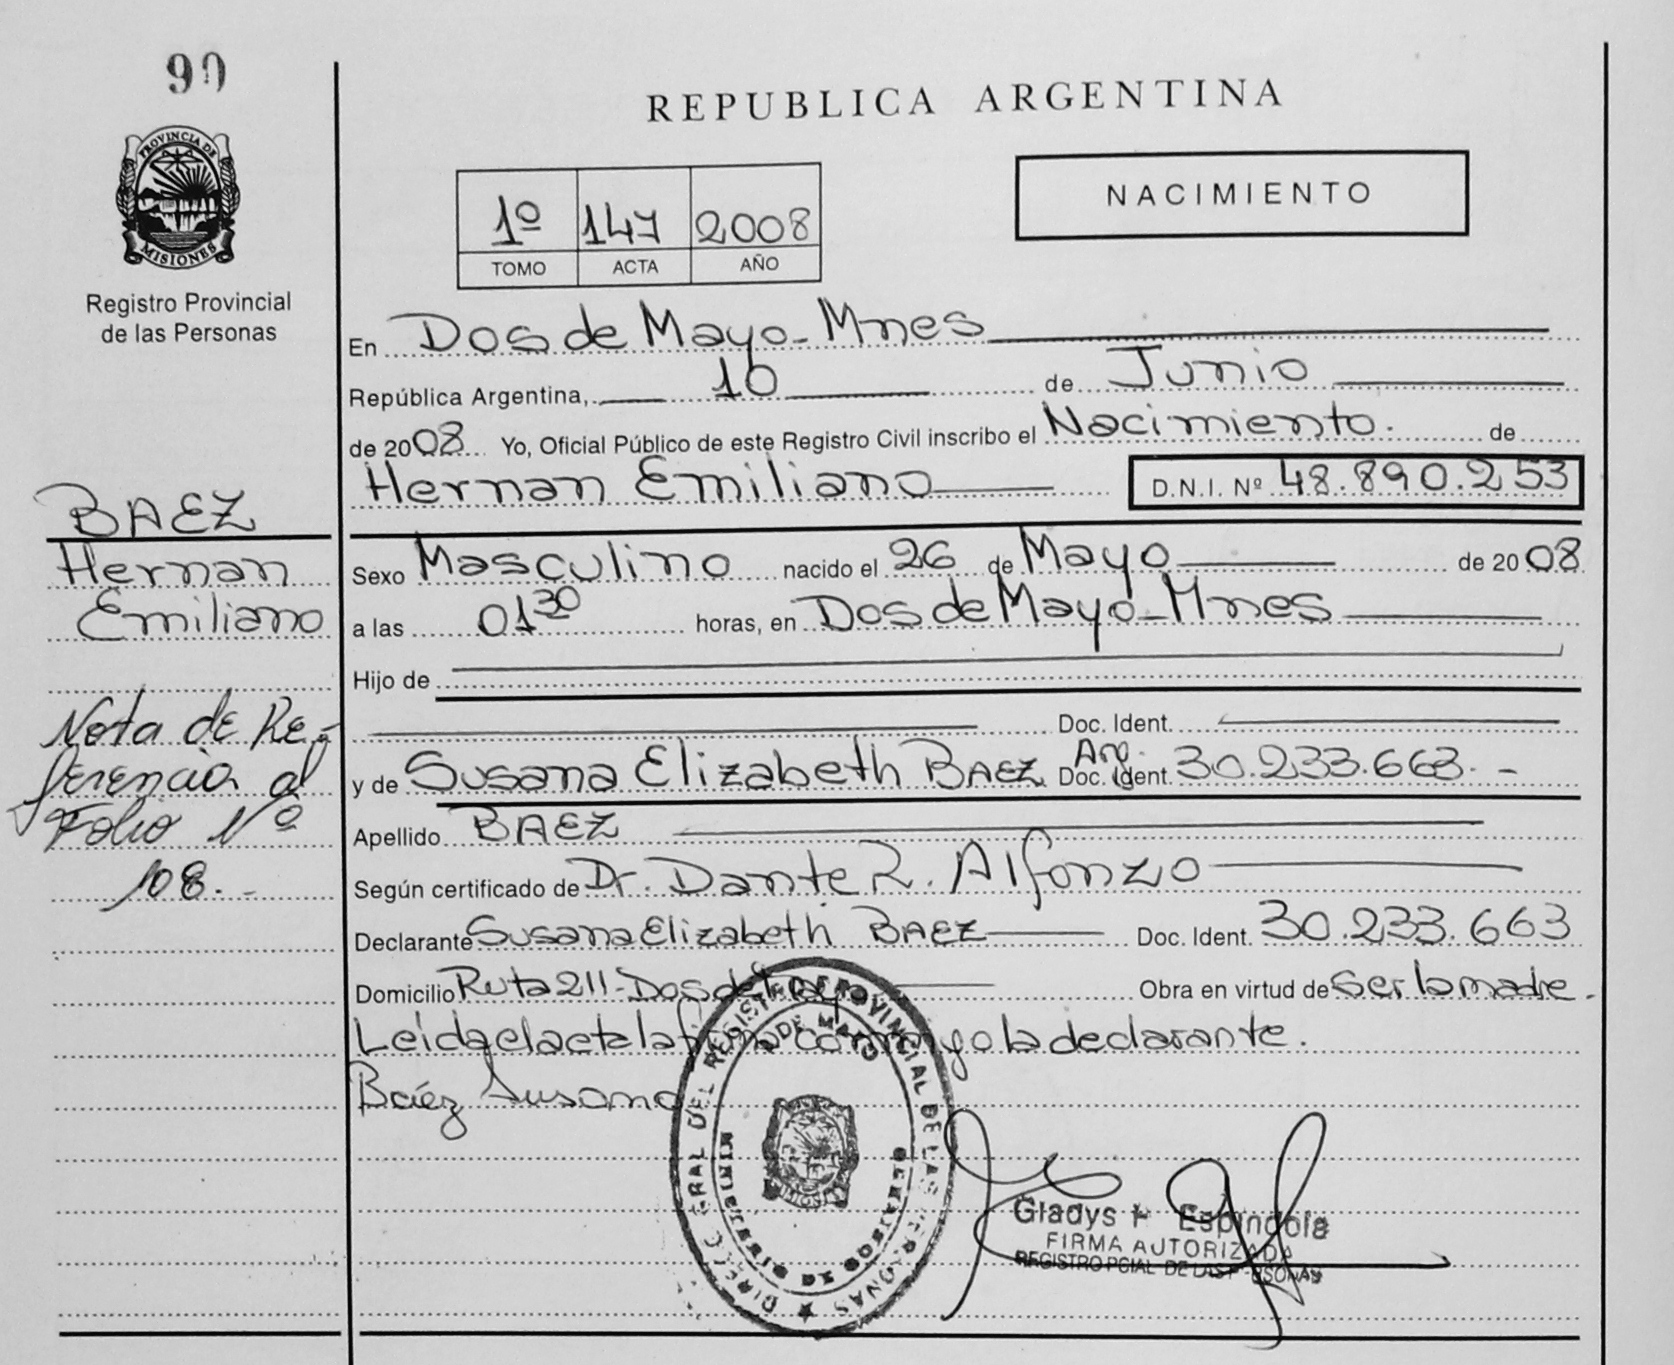 90
PROVINCIA DE
MISIONES
Registro Provincial
de las Personas
BAEZ
Hernan
Emiliano
Nota de Re-
ferencia al
Folio Nº
108.-
REPUBLICA ARGENTINA
1º 147 2008
TOMO ACTA AÑO
NACIMIENTO
En Dos de Mayo-Mnes
República Argentina, 10 de Junio
de 2008 Yo, Oficial Público de este Registro Civil inscribo el Nacimiento. de
Hernan Emiliano D.N.I. Nº 48.890.253
Sexo Masculino nacido el 26 de Mayo de 2008
a las 01 30 horas, en Dos de Mayo-Mnes
Hijo de
Doc. Ident.
y de Susana Elizabeth BAEZ Arg. Doc. Ident. 30.233.663.-
Apellido BAEZ
Según certificado de Dr. Dante R. Alfonzo
Declarante Susana Elizabeth BAEZ Doc. Ident. 30.233.663
Domicilio Ruta 211-Dos de Mayo Obra en virtud de Ser la madre.
Leida el acta la firma conmigo la declarante.
Baéz Susana
DIRECC GRAL DEL REGISTRO PROVINCIAL DE LAS PERSONAS
DOS DE MAYO
MINISTERIO DE GOBIERNO
Gladys Espindola
FIRMA AUTORIZADA
REGISTRO PCIAL DE LAS PERSONAS